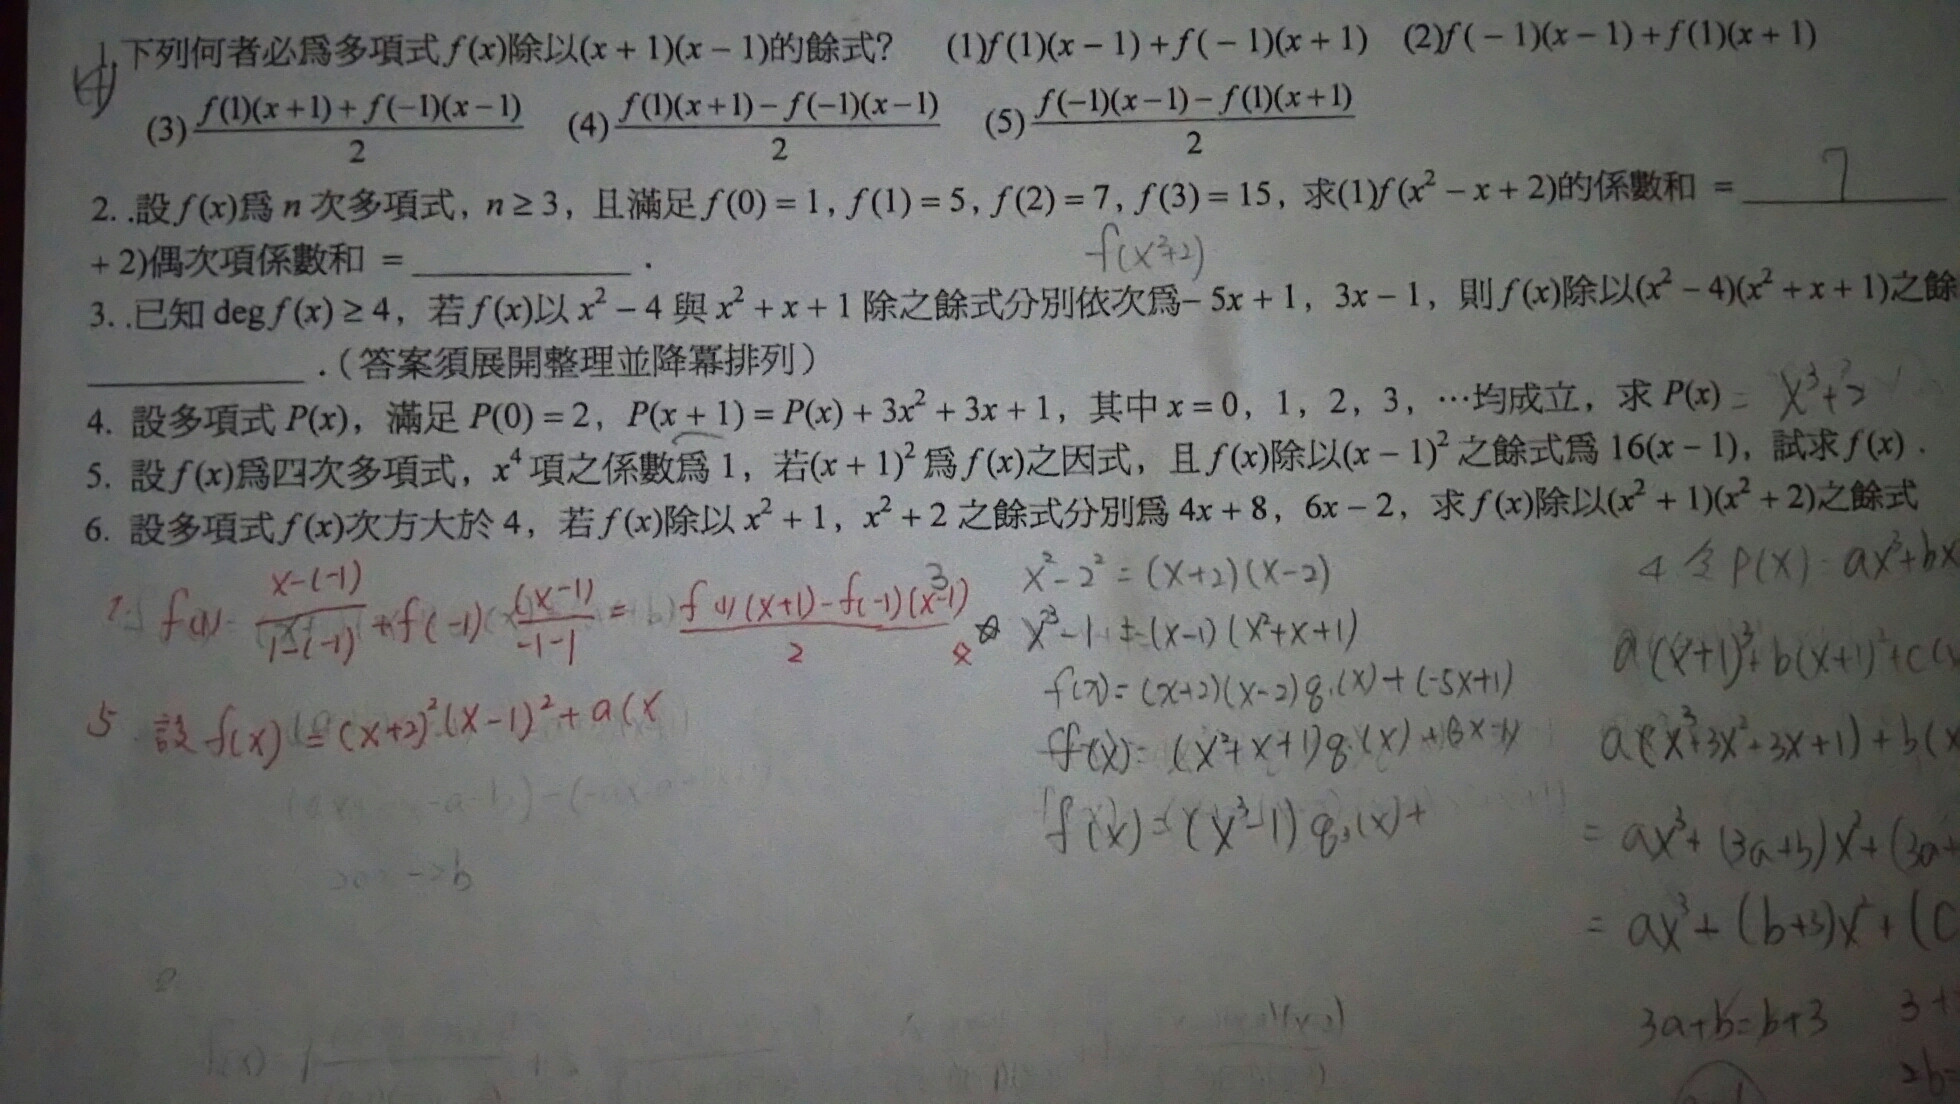 1.下列何者必為多項式 f(x)除以(x + 1)(x − 1)的餘式? (1)f(1)(x − 1) + f(− 1)(x + 1) (2)f(− 1)(x − 1) + f(1)(x + 1)
(4)
(3) f(1)(x+1)+f(−1)(x−1) / 2 (4) f(1)(x+1)−f(−1)(x−1) / 2 (5) f(−1)(x−1)−f(1)(x+1) / 2
2. .設 f(x)為 n 次多項式, n ≥ 3, 且滿足 f(0) = 1, f(1) = 5, f(2) = 7, f(3) = 15, 求(1)f(x² − x + 2)的係數和 = 7
+ 2)偶次項係數和 = ________ .
f(x²+2)
3. .已知 deg f(x) ≥ 4, 若 f(x)以 x² − 4 與 x² + x + 1 除之餘式分別依次為− 5x + 1, 3x − 1, 則 f(x)除以(x² − 4)(x² + x + 1)之餘
________ .(答案須展開整理並降冪排列)
4. 設多項式 P(x), 滿足 P(0) = 2, P(x + 1) = P(x) + 3x² + 3x + 1, 其中 x = 0, 1, 2, 3, …均成立, 求 P(x) = x³+2
5. 設 f(x)為四次多項式, x⁴ 項之係數為 1, 若(x + 1)² 為 f(x)之因式, 且 f(x)除以(x − 1)² 之餘式為 16(x − 1), 試求 f(x) .
6. 設多項式 f(x)次方大於 4, 若 f(x)除以 x² + 1, x² + 2 之餘式分別為 4x + 8, 6x − 2, 求 f(x)除以(x² + 1)(x² + 2)之餘式
f(1) x-(-1) / 1-(-1) + f(-1) (x-1) / -1-1 = f(1)(x+1)-f(-1)(x-1) / 2
5 設 f(x) = (x+2)²(x-1)² + a(x
3
x²-2² = (x+2)(x-2)
x³-1 = (x-1)(x²+x+1)
f(x) = (x+2)(x-2)q₁(x) + (-5x+1)
f(x) = (x²+x+1)q₂(x) + (3x-1)
f(x) = (x³-1)q₃(x) +
4 令 P(x) = ax³+bx
a(x+1)³+b(x+1)²+c(x
a(x³+3x²+3x+1)+b(x
= ax³+(3a+b)x²+(3a+
= ax³+(b+3)x²+(c
3a+b=b+3